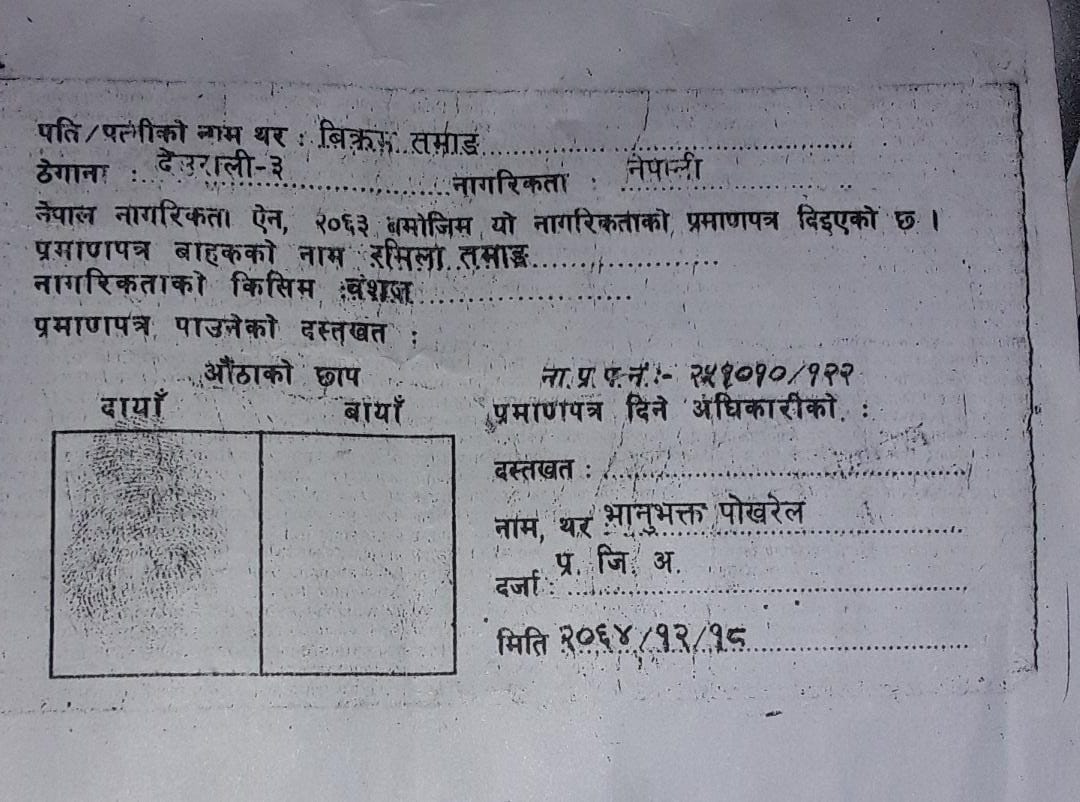 पति/पत्नीको नाम थर : बिक्रम तमाङ
ठेगाना : देउराली-३ नागरिकता : नेपाली
नेपाल नागरिकता ऐन, २०६३ बमोजिम यो नागरिकताको प्रमाणपत्र दिइएको छ ।
प्रमाणपत्र बाहकको नाम तमाङ
नागरिकताको किसिम : वंशज
प्रमाणपत्र पाउनेको दस्तखत :
औंठाको छाप
दायाँ बायाँ
ना.प्र.प.नं.:-
प्रमाणपत्र दिने अधिकारीको :
दस्तखत :
नाम, थर भानुभक्त पोखरेल
दर्जा : प्र. जि. अ.
मिति २०६४/१२/१८